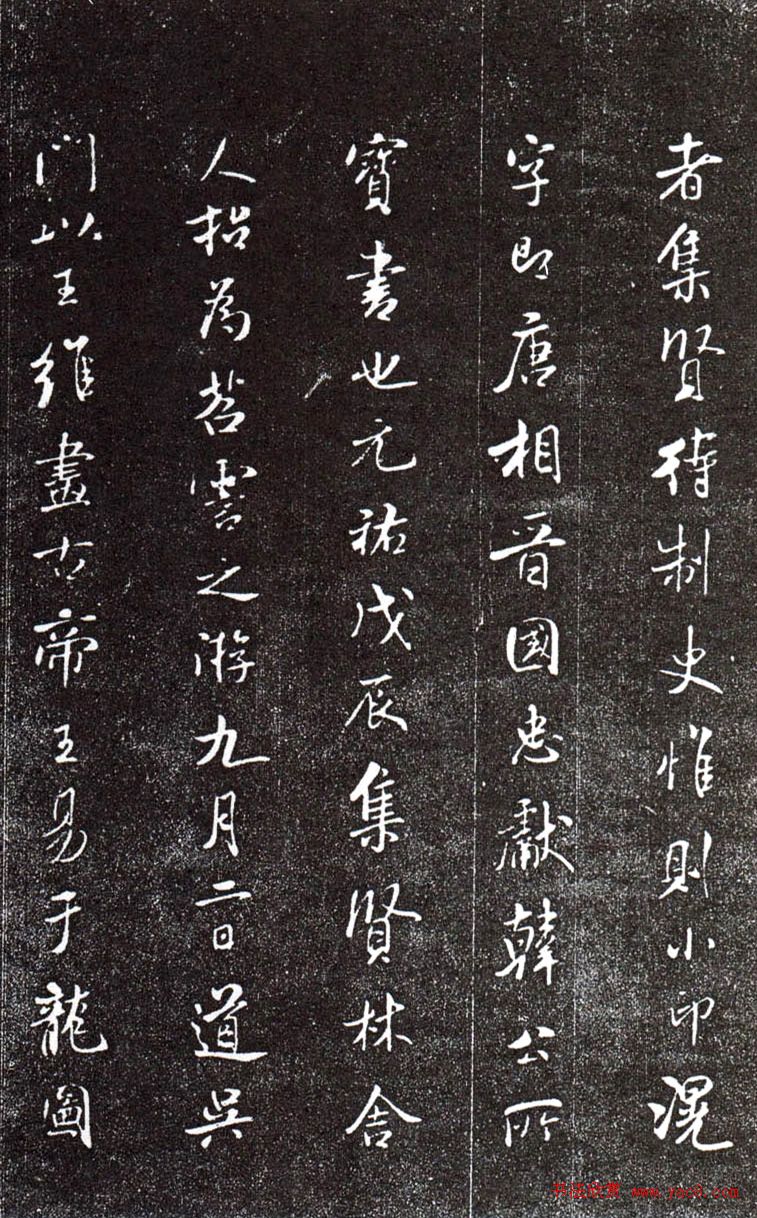 者集賢待制史惟則小印滉
字即唐相晉國忠獻韓公所
寶書也元祐戊辰集賢林舍
人招為苕霅之游九月二日道吳
門以王維畫古帝王易于龍圖
书法欣赏 www.yac8.com